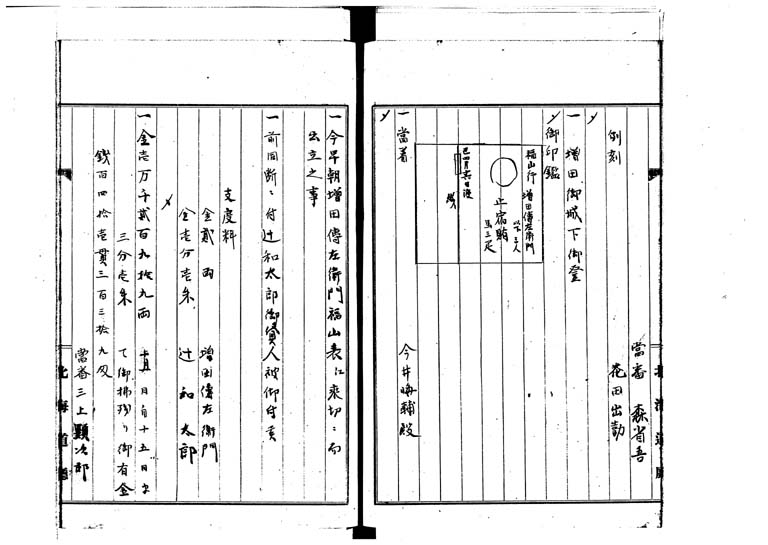 當番 森省吾
例刻 花田出勤
〃
一 増田御城下御登
〃 御印鑑
福山行 増田傳左衛門
上下三人
馬三疋
止宿賄
巳四月六日後
一 當着 今井 輔殿
〃
一 今早朝増田傳左衛門福山表江 切ニ而
出立之事
一 前同断ニ付辻和太郎御 人被御付
支度料
金貳両 増田傳左衛門
金壱分壱朱 辻和太郎
〃
一 金壱万千貳百九拾九両 日自十五日
三分壱朱 御拂残り御有金
錢百四拾壱貫三百三拾九文
當番 三上顕次郎
北海道廳
北海道廳